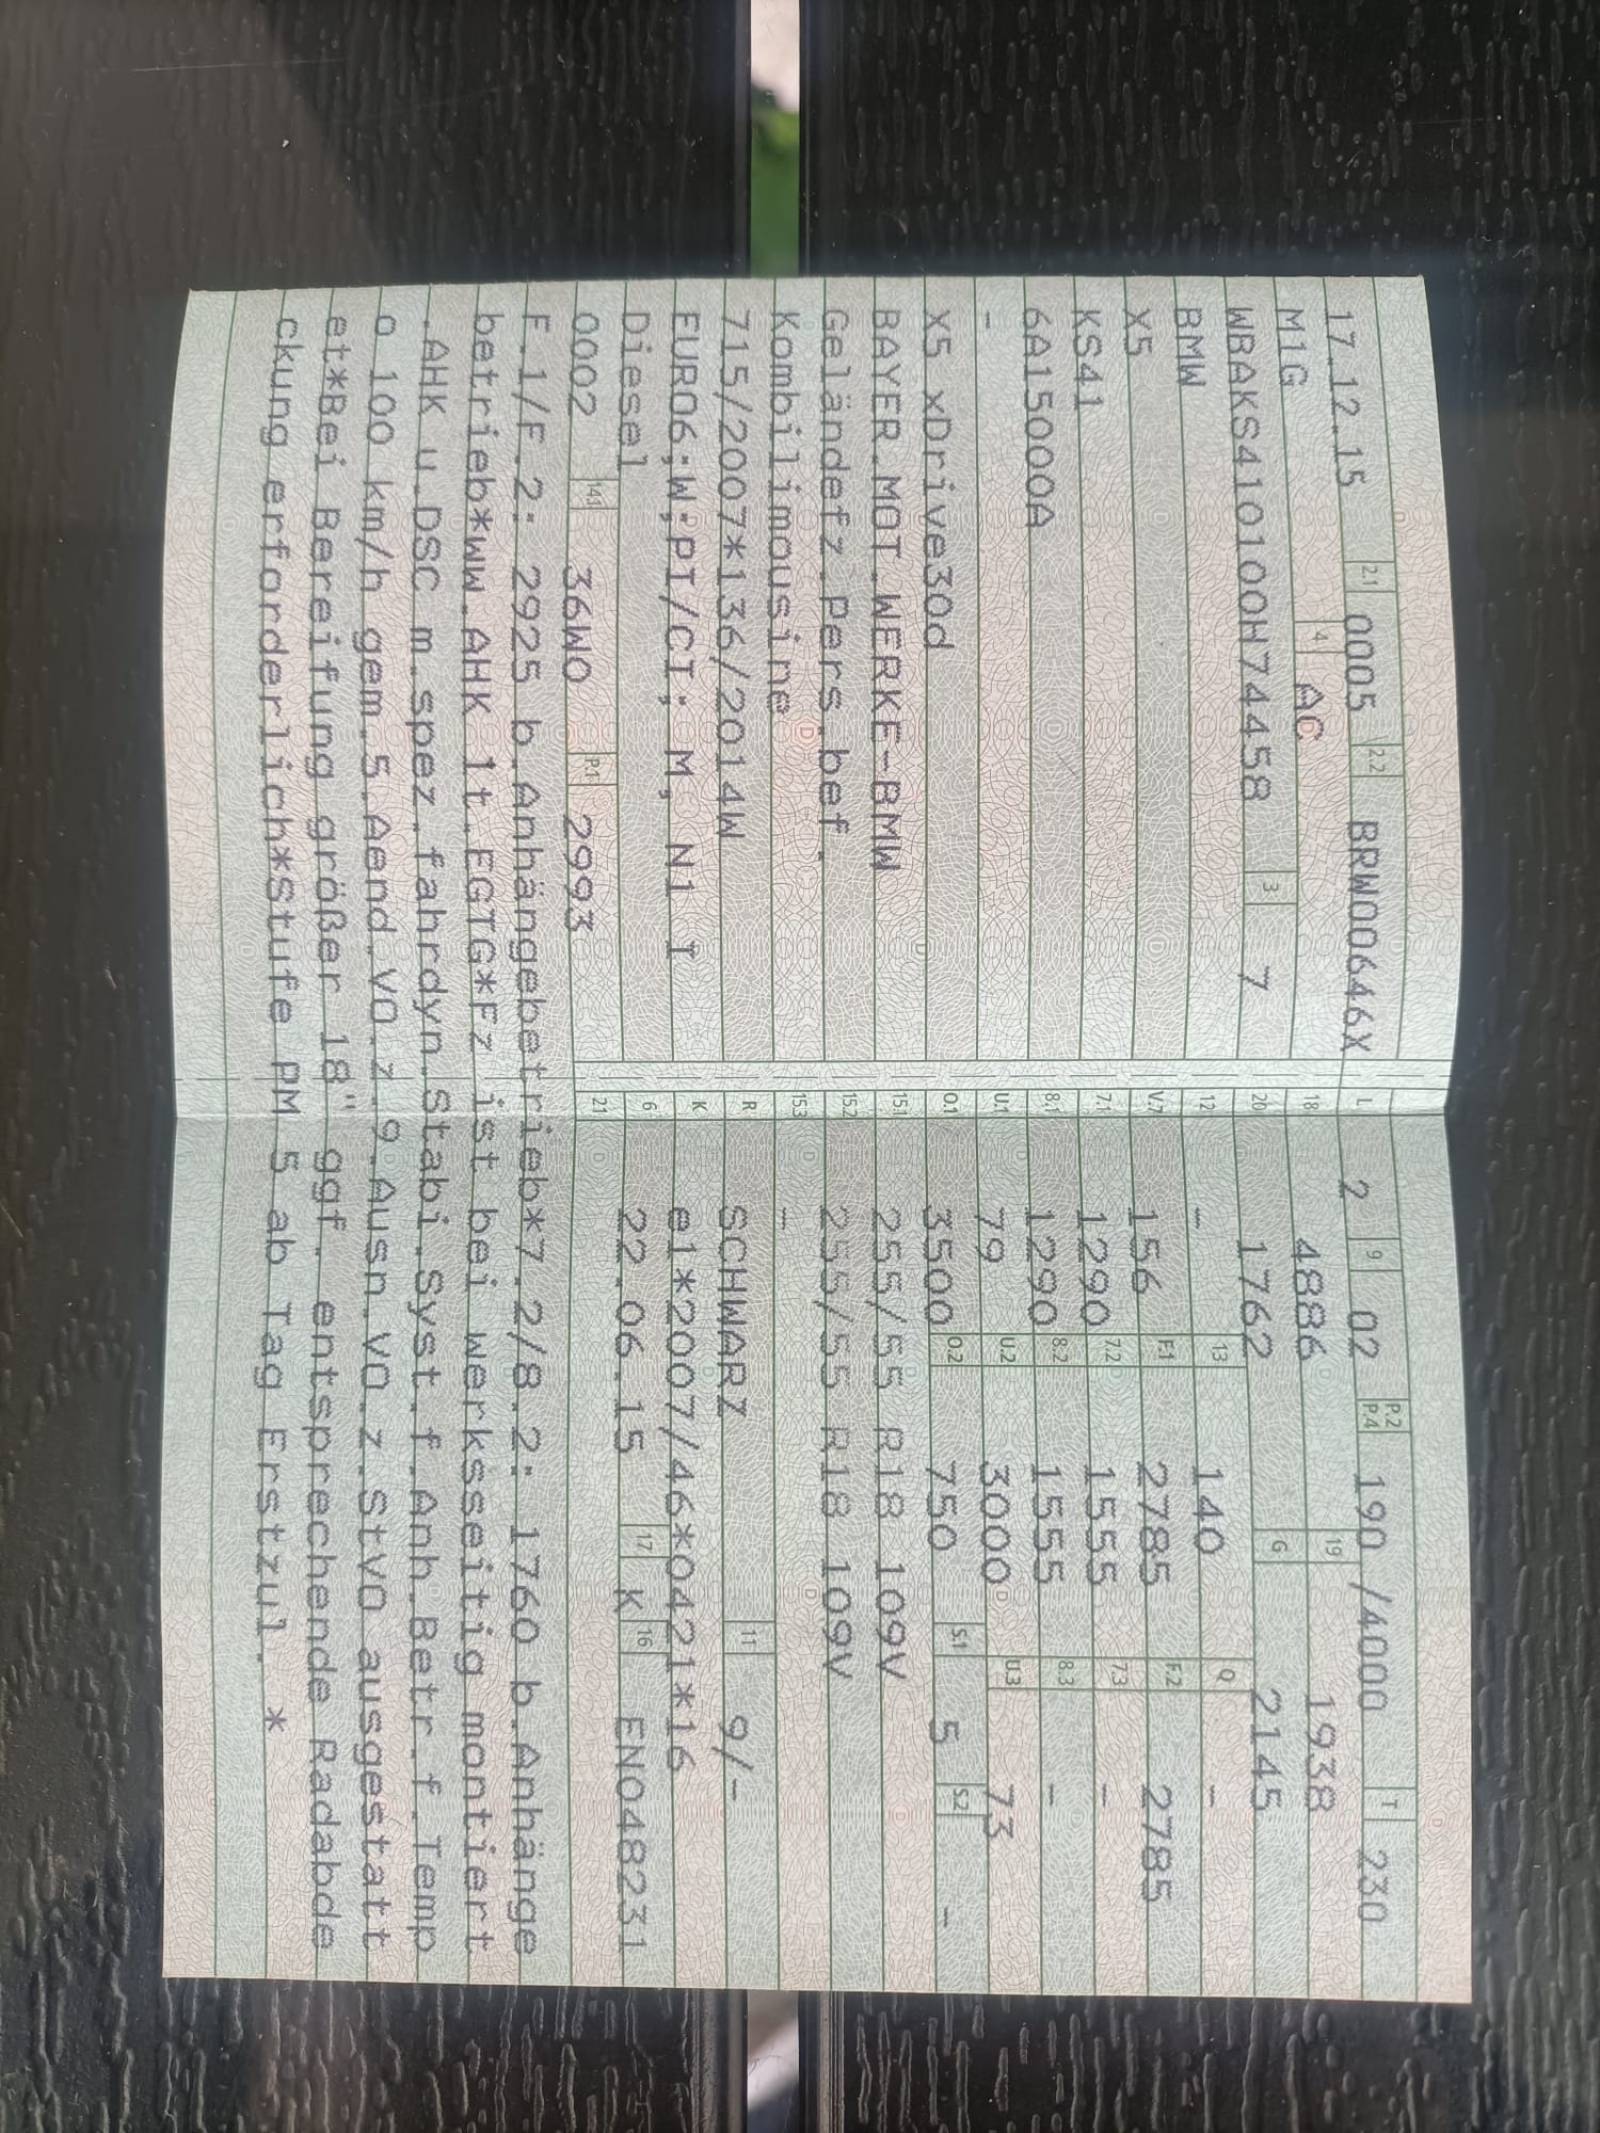 17.12.15 2.1 0005 2.2 BRW00646X L 2 9 02 P.2 P.4 190 /4000 T 230
M1G 4 AC 18 4886 19 1938
WBAKS410100H74458 3 7 20 1762 G 2145
BMW 12 - 13 140 Q -
X5 V.7 156 F.1 2785 F.2 2785
KS41 7.1 1290 7.2 1555 7.3 -
6A15000A 8.1 1290 8.2 1555 8.3 -
- U.1 79 U.2 3000 U.3 73
X5 xDrive30d O.1 3500 O.2 750 S.1 5 S.2 -
BAYER.MOT.WERKE-BMW 15.1 255/55 R18 109V
Geländefz.Pers.bef. 15.2 255/55 R18 109V
Kombilimousine 15.3 -
715/2007*136/2014W R SCHWARZ 11 9/-
EURO6;W;PI/CI; M, N1 I K e1*2007/46*0421*16
Diesel 6 22.06.15 17 K 16 EN048231
0002 14.1 36W0 P.1 2993 21
F.1/F.2: 2925 b.Anhängebetrieb*7.2/8.2: 1760 b.Anhänge
betrieb*ww.AHK lt.EGTG*Fz ist bei werksseitig montiert
.AHK u.DSC m.spez.fahrdyn.Stabi.Syst.f.Anh.Betr.f.Temp
o 100 km/h gem.5.Aend.VO.z.9.Ausn.VO.z.StVO ausgestatt
et*Bei Bereifung größer 18" ggf. entsprechende Radabde
ckung erforderlich*Stufe PM 5 ab Tag Erstzul. *